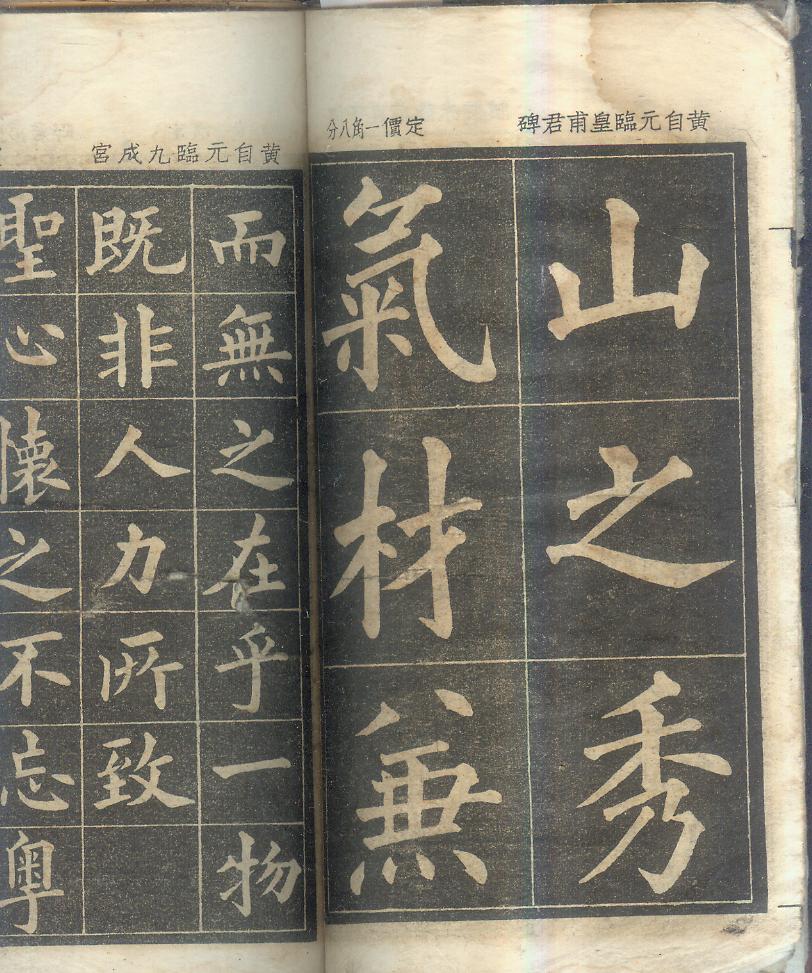 黄自元臨皇甫君碑
定價一角八分
山之秀
氣材兼
黄自元臨九成宮
而無之在乎一物
既非人力所致
聖心懷之不忘粵